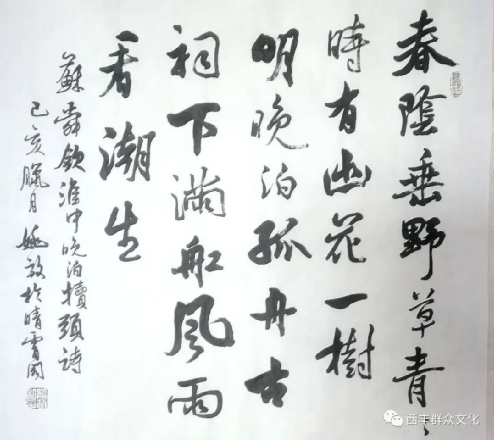 春陰垂野草青〻
時有幽花一樹
明晚泊孤舟古
祠下滿船風雨
看潮生
蘇舜欽淮中晚泊犢頭詩
己亥臘月姚於晴雪
西丰群众文化